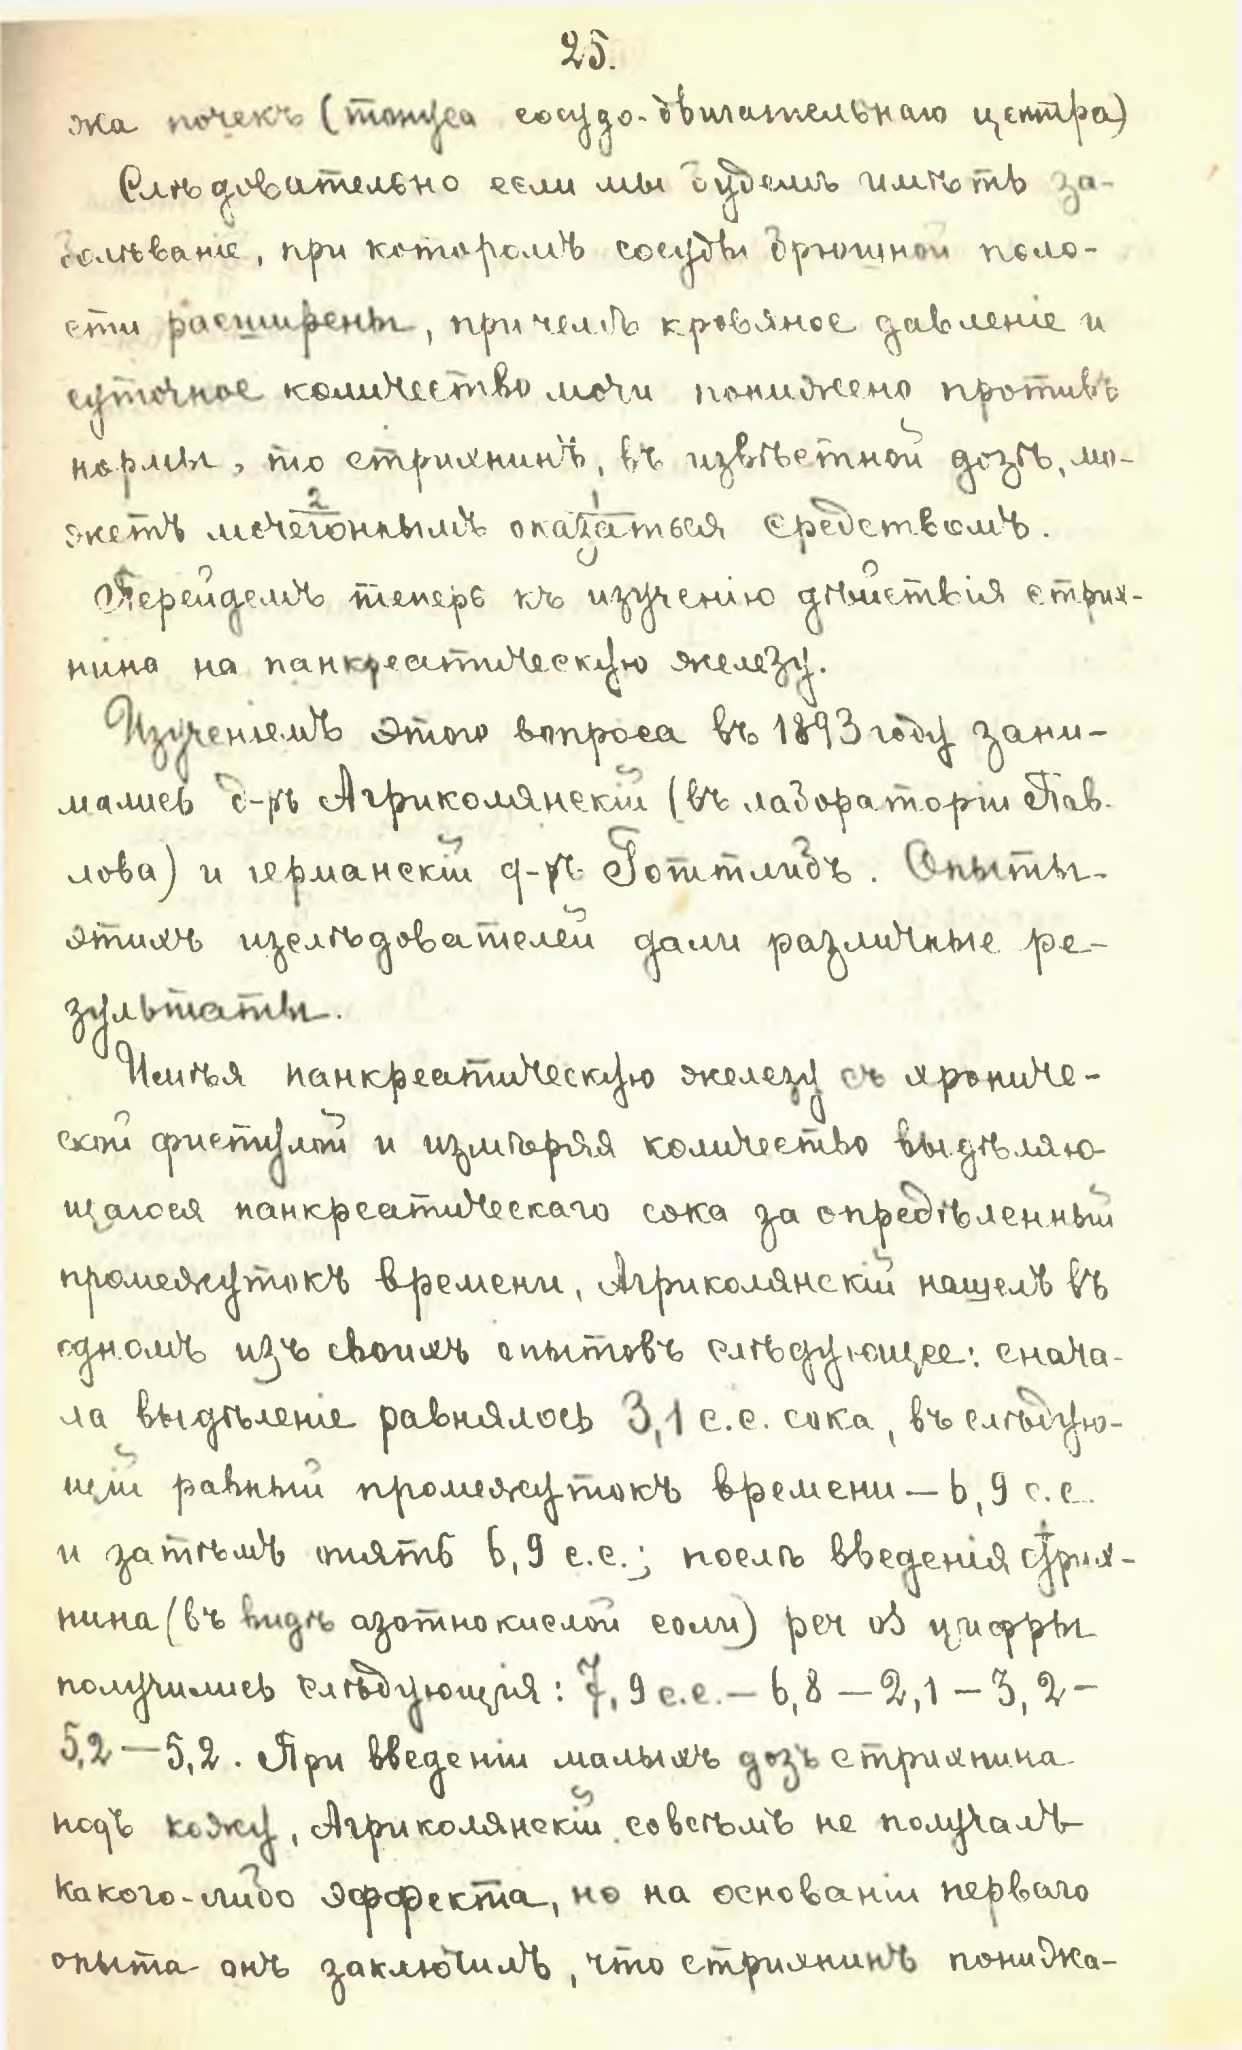 25.
жа почекъ (тонуса сосудо-двигательнаго центра)
Слѣдовательно если мы будемъ имѣть за-
болѣваніе, при которомъ сосуды брюшной поло-
сти расширены, причемъ кровяное давленіе и
суточное количество мочи понижено противъ
нормы, то стрихнинъ, въ извѣстной дозѣ, мо-
2 1
жетъ мочегоннымъ оказаться средствомъ.
Перейдемъ теперь къ изученію дѣйствія стрих-
нина на панкреатическую железу.
Изученіемъ этого вопроса въ 1893 году зани-
мались д-ръ Агриколянскій (въ лабораторіи Пав-
лова) и германскій д-ръ Готтлибъ. Опыты
этихъ изслѣдователей дали различные ре-
зультаты.
Имѣя панкреатическую железу съ хрониче-
ской фистулой и измѣряя количество выдѣляю-
щагося панкреатическаго сока за опредѣленный
промежутокъ времени, Агриколянскій нашелъ въ
одномъ изъ своихъ опытовъ слѣдующее: снача-
ла выдѣленіе равнялось 3,1 с.с. сока, въ слѣдую-
щій равный промежутокъ времени — 6,9 с.с.
и затѣмъ опять 6,9 с.с.; послѣ введенія стрих-
нина (въ видѣ азотнокислой соли) per os цифры
получились слѣдующія: 7,9 с.с. — 6,8 — 2,1 — 3,2 —
5,2 — 5,2. При введеніи малыхъ дозъ стрихнина
подъ кожу, Агриколянскій совсѣмъ не получалъ
какого-либо эффекта, но на основаніи перваго
опыта онъ заключилъ, что стрихнинъ понижа-